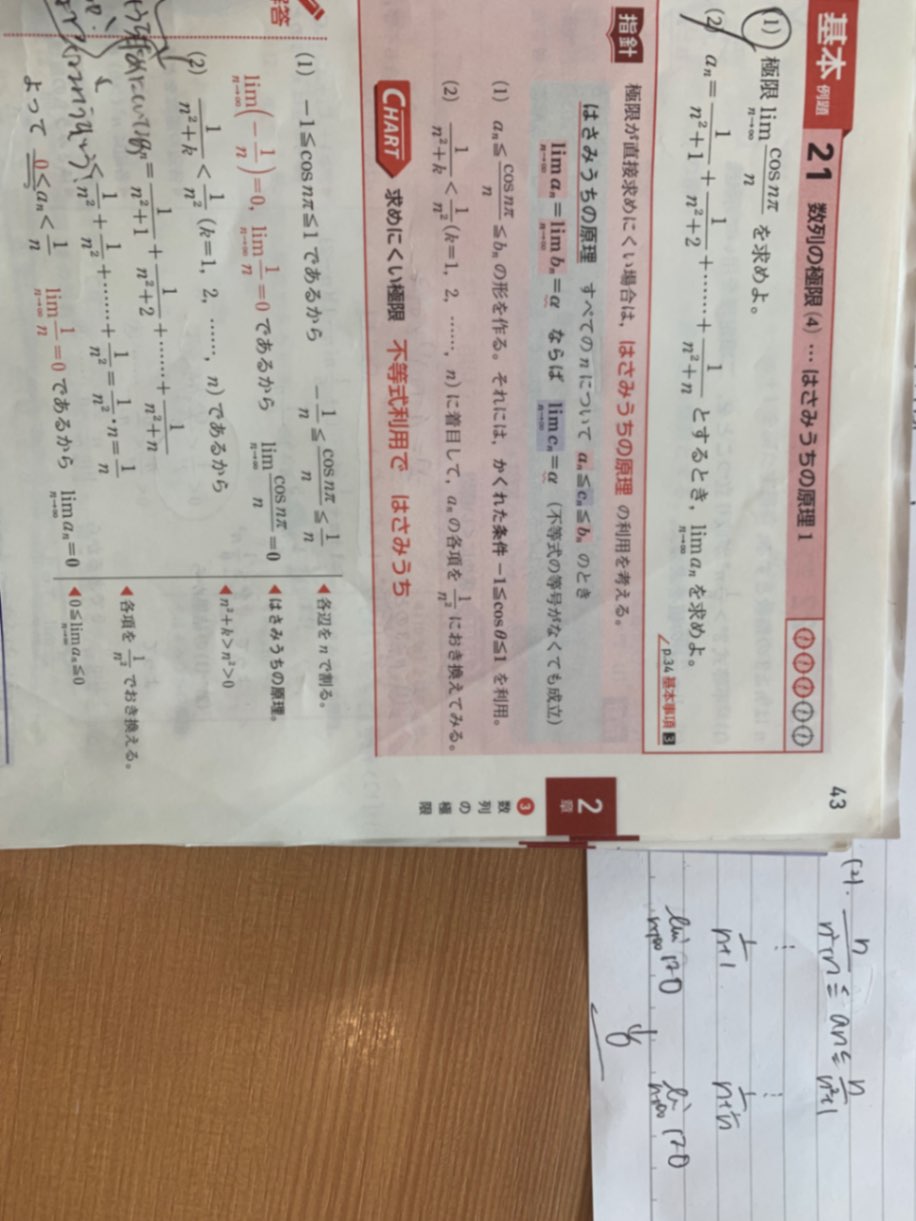 43
基本 例題 21 数列の極限(4) … はさみうちの原理 1
(1) 極限 lim_{n→∞} cos nπ/n を求めよ。
(2) a_n = 1/(n²+1) + 1/(n²+2) + …… + 1/(n²+n) とするとき，lim_{n→∞} a_n を求めよ。
p.34 基本事項 3
指針 極限が直接求めにくい場合は，はさみうちの原理 の利用を考える。
はさみうちの原理 すべての n について a_n ≦ c_n ≦ b_n のとき
lim_{n→∞} a_n = lim_{n→∞} b_n = α ならば lim_{n→∞} c_n = α (不等式の等号がなくても成立)
(1) a_n ≦ cos nπ/n ≦ b_n の形を作る。それには，かくれた条件 −1≦cos θ≦1 を利用。
(2) 1/(n²+k) < 1/n² (k=1, 2, ……, n) に着目して，a_n の各項を 1/n² におき換えてみる。
CHART 求めにくい極限 不等式利用で はさみうち
2章
3 数列の極限
解答
(1) −1≦cos nπ≦1 であるから −1/n ≦ cos nπ/n ≦ 1/n
◀各辺を n で割る。
lim_{n→∞}(−1/n)=0, lim_{n→∞} 1/n=0 であるから lim_{n→∞} cos nπ/n = 0
◀はさみうちの原理。
(2) 1/(n²+k) < 1/n² (k=1, 2, ……, n) であるから
◀n²+k>n²>0
a_n = 1/(n²+1) + 1/(n²+2) + …… + 1/(n²+n)
< 1/n² + 1/n² + …… + 1/n² = 1/n²・n = 1/n
◀各項を 1/n² でおき換える。
よって 0<a_n<1/n lim_{n→∞} 1/n=0 であるから lim_{n→∞} a_n=0
◀0≦lim_{n→∞} a_n≦0
(2). n/(n²+n) ≦ an ≦ n/(n²+1)
⋮ ⋮
1/(n+1) 1/(n+1/n)
lim_{n→∞} → 0 lim_{n→∞} → 0